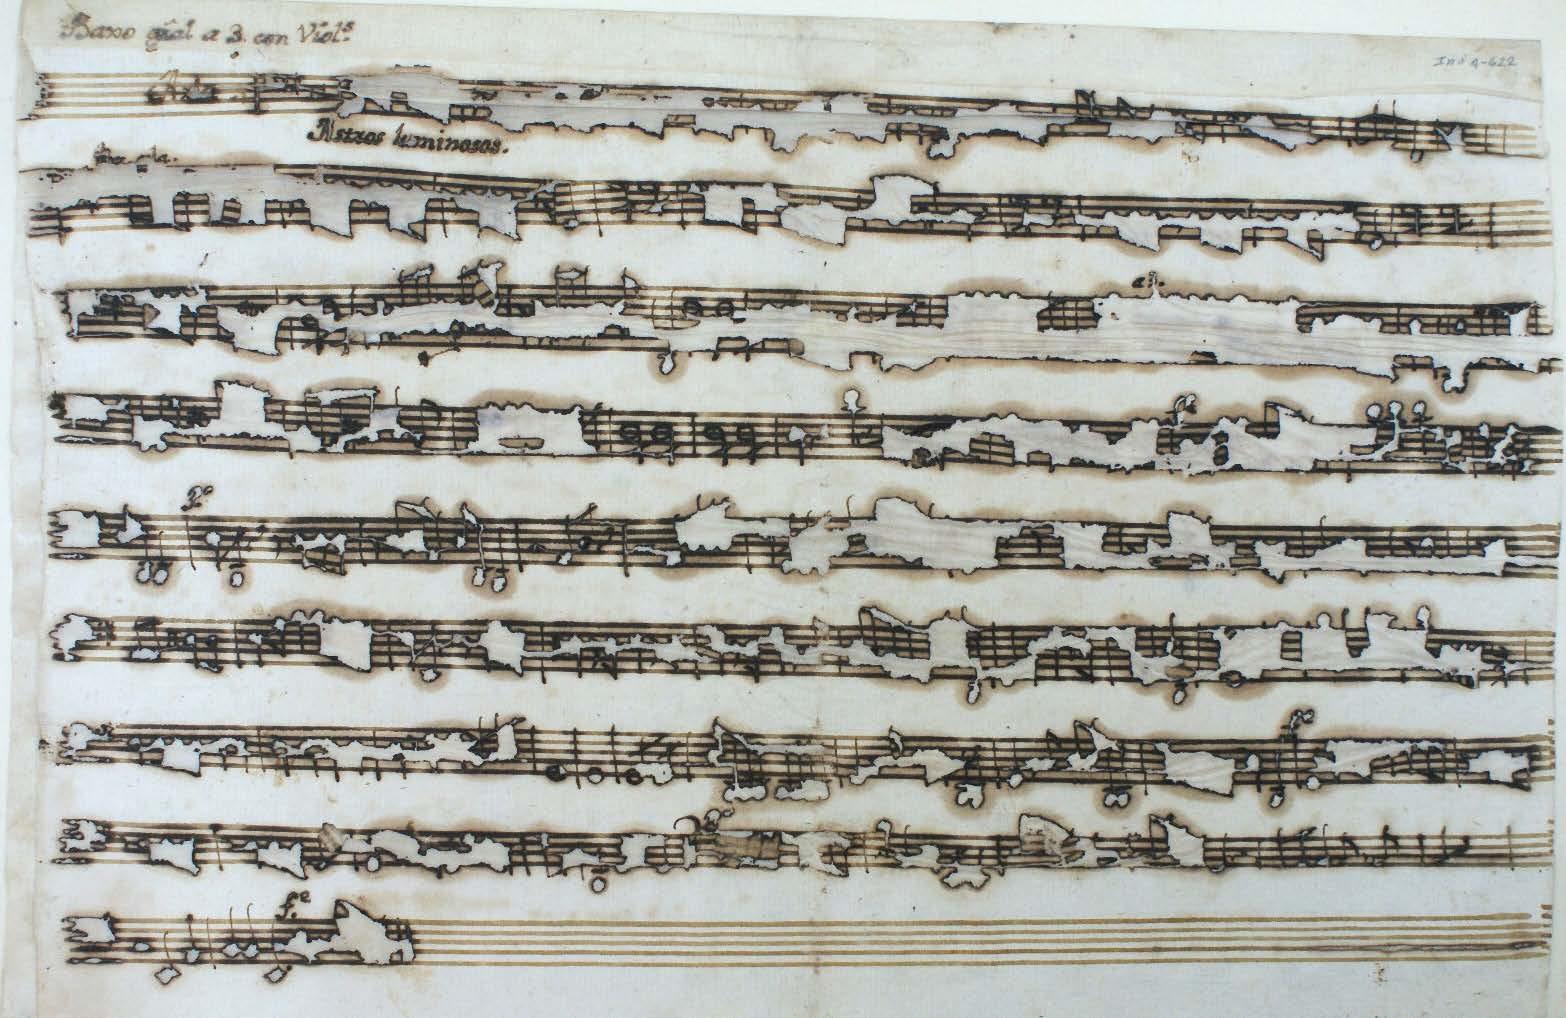 Baxo gŝal a 3. con Violˢ
Ind 4-622
Astros luminosos.
a 3.
Pº
fº